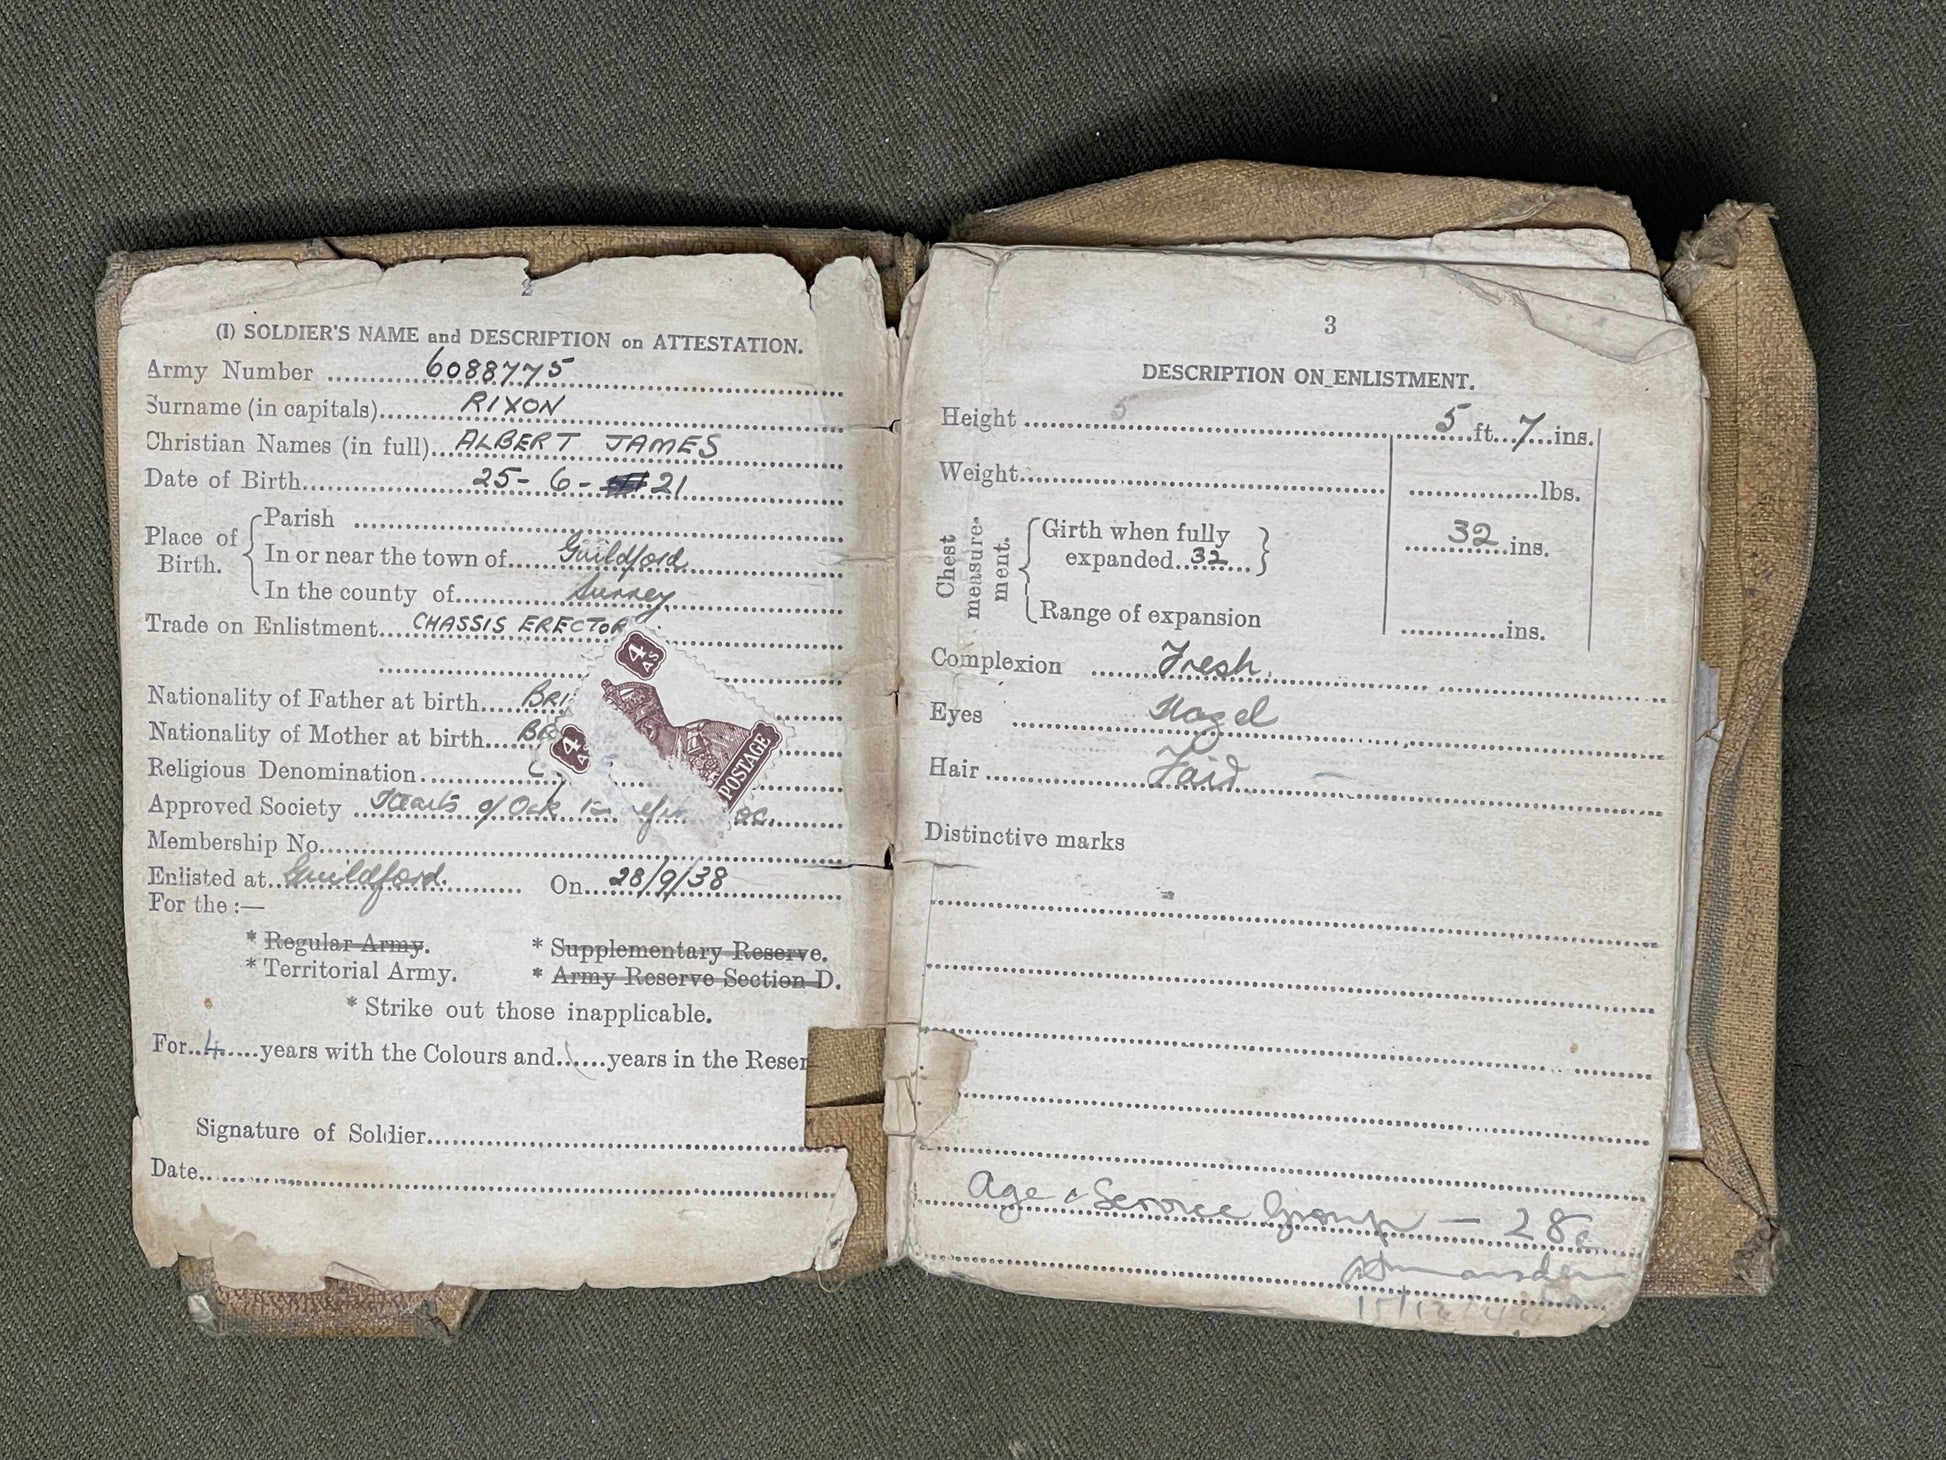 2
(I) SOLDIER'S NAME and DESCRIPTION on ATTESTATION.
Army Number 6088775
Surname (in capitals) RIXON
Christian Names (in full) ALBERT JAMES
Date of Birth 25-6-21
Place of Birth.
Parish
In or near the town of Guildford
In the county of Surrey
Trade on Enlistment CHASSIS ERECTOR
Nationality of Father at birth BRI
Nationality of Mother at birth BR
Religious Denomination C
Approved Society Hearts of Oak Soc.
Membership No.
Enlisted at Guildford. On 28/9/38
For the :—
* Regular Army. * Supplementary Reserve.
* Territorial Army. * Army Reserve Section D.
* Strike out those inapplicable.
For 4 years with the Colours and years in the Reser
Signature of Soldier
Date
4 AS
4 A
POSTAGE
3
DESCRIPTION ON ENLISTMENT.
Height 5 5 ft. 7 ins.
Weight lbs.
Chest measurement.
Girth when fully expanded 32 32 ins.
Range of expansion ins.
Complexion Fresh.
Eyes Hazel
Hair Fair
Distinctive marks
Age & Service Group — 28
15/12/44